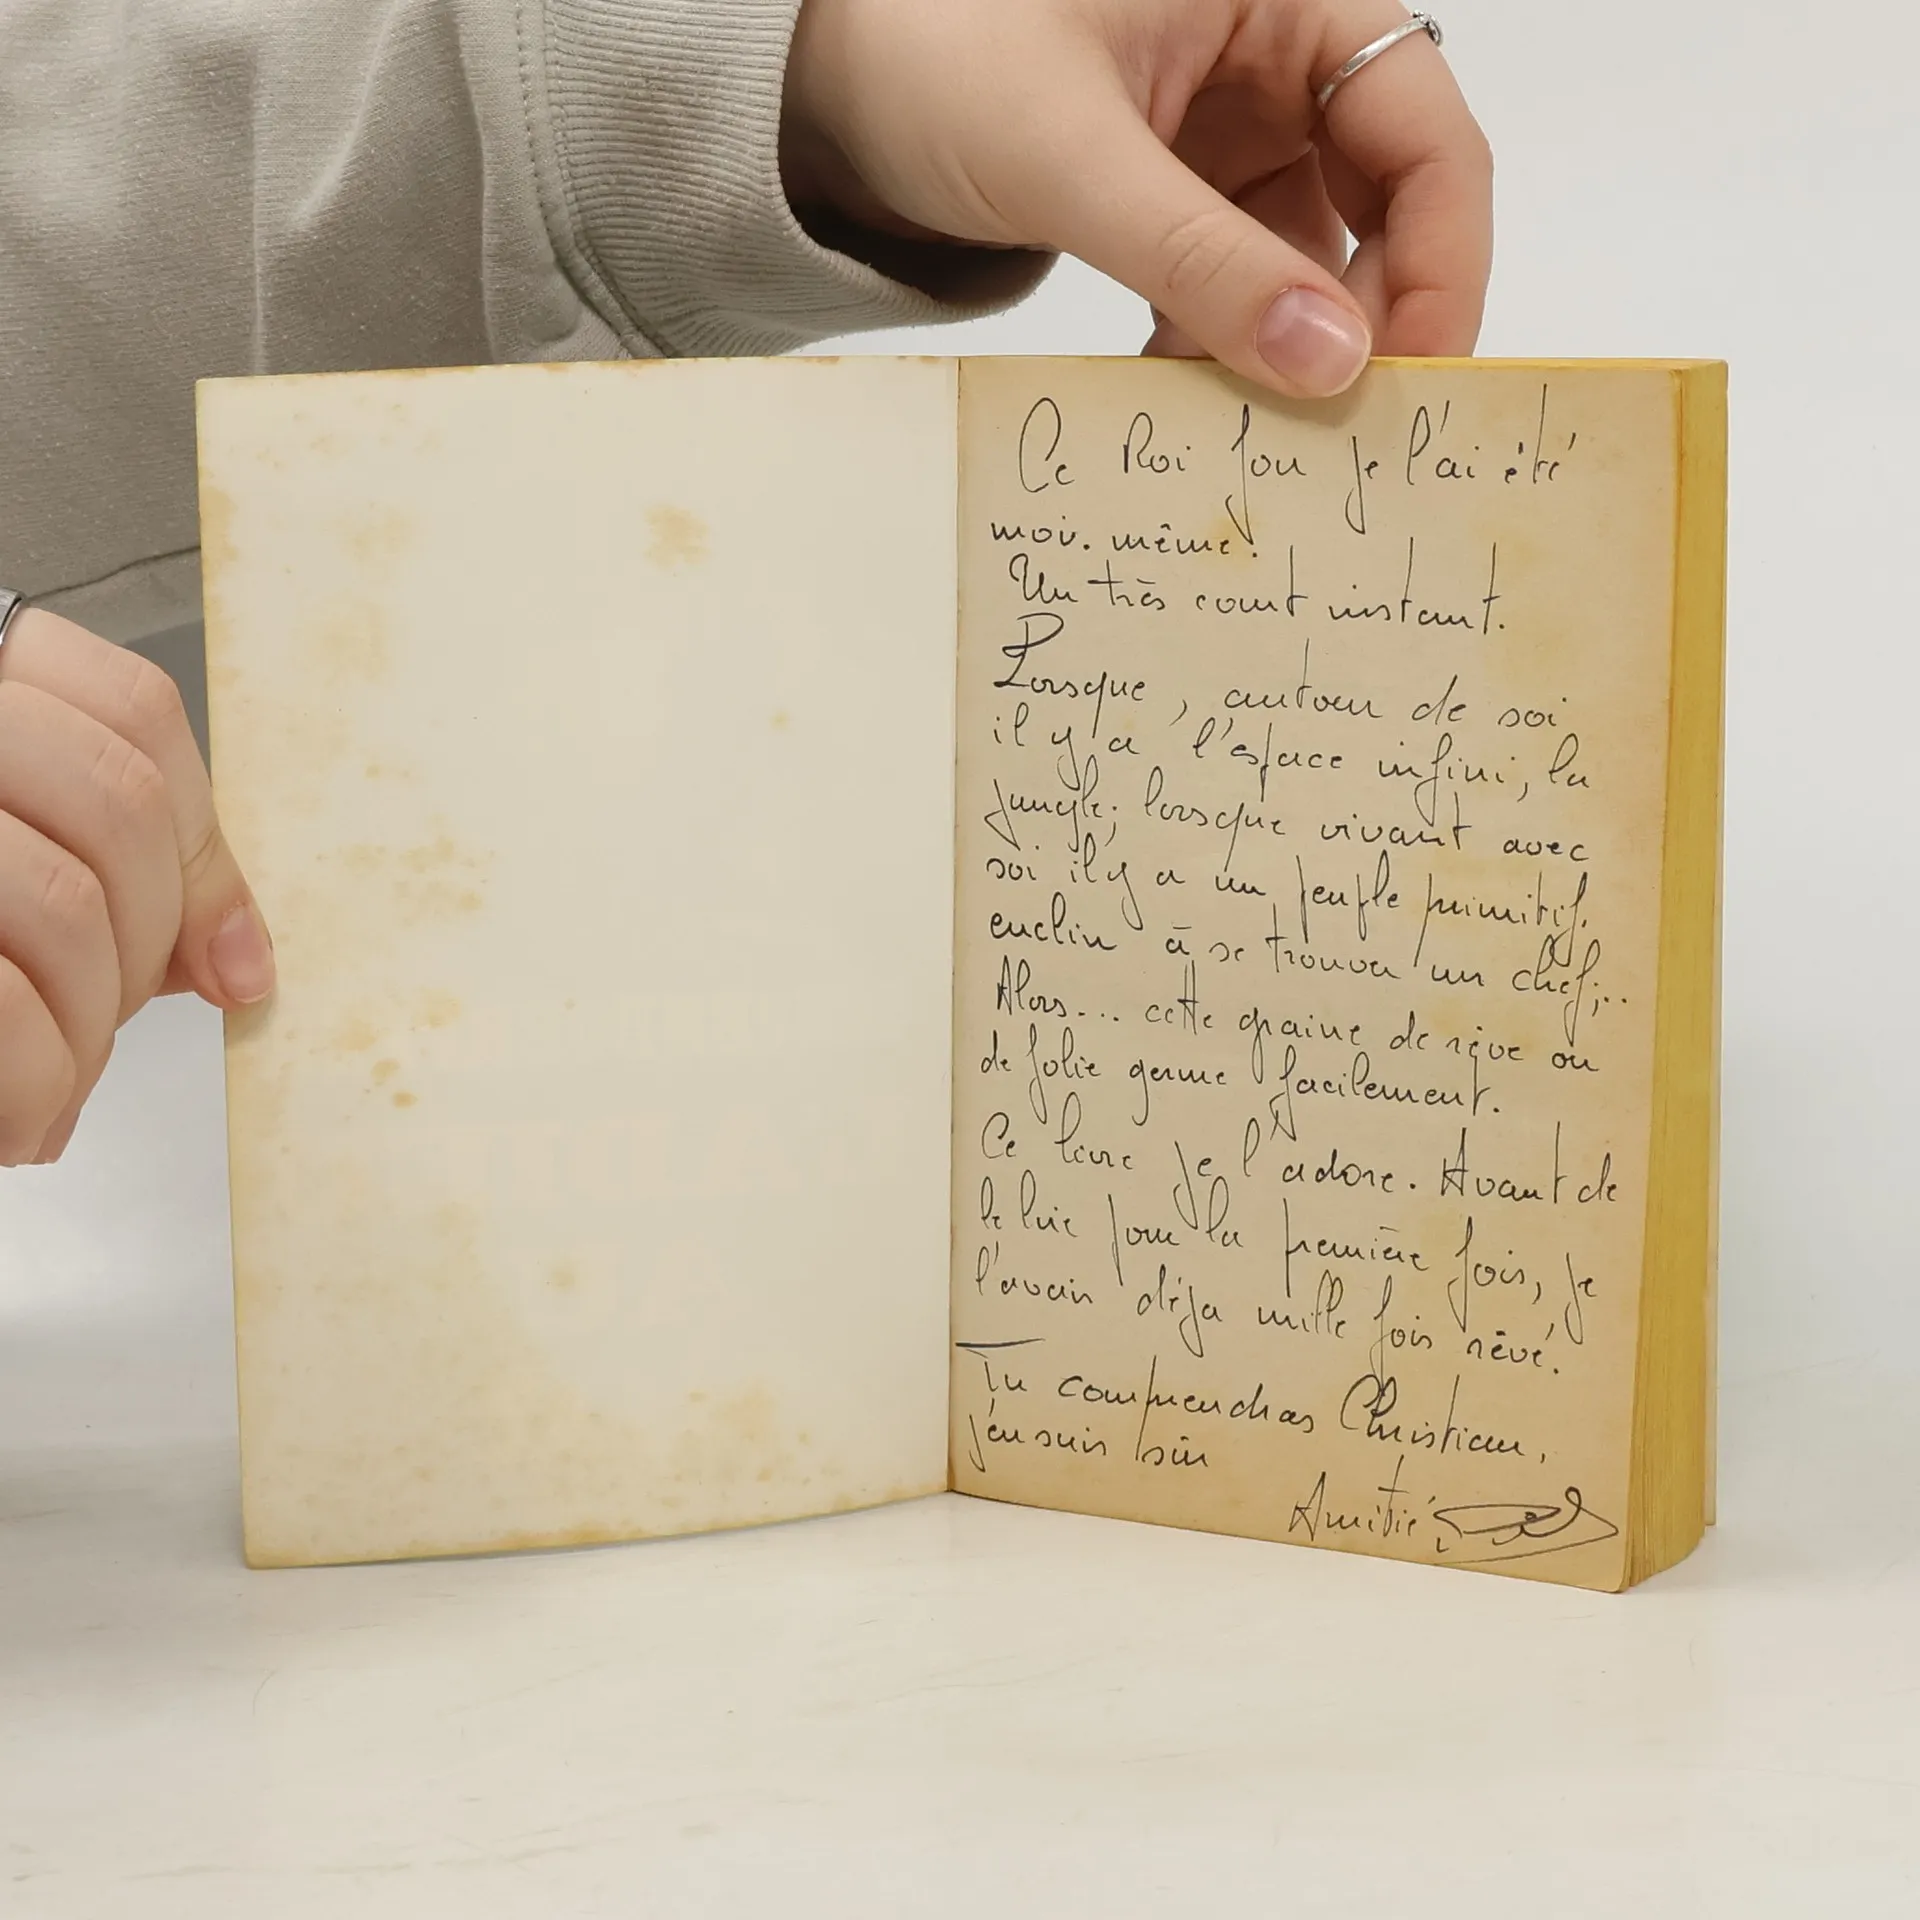 Ce Roi fou je l'ai été
moi-même.
Un très court instant.
Lorsque, autour de soi
il y a l'espace infini, la
jungle; lorsque vivant avec
soi il y a un peuple primitif,
enclin à se trouver un chef;..
Alors... cette graine de rêve ou
de folie germe facilement.
Ce livre je l'adore. Avant de
le lire pour la première fois, je
l'avais déja mille fois rêvé.
Tu comprendras Christian,
j'en suis sûr
Amitié,